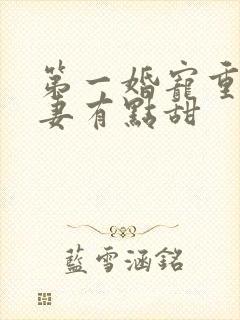 第一婚寵重
妻有點甜
藍雪涵銘